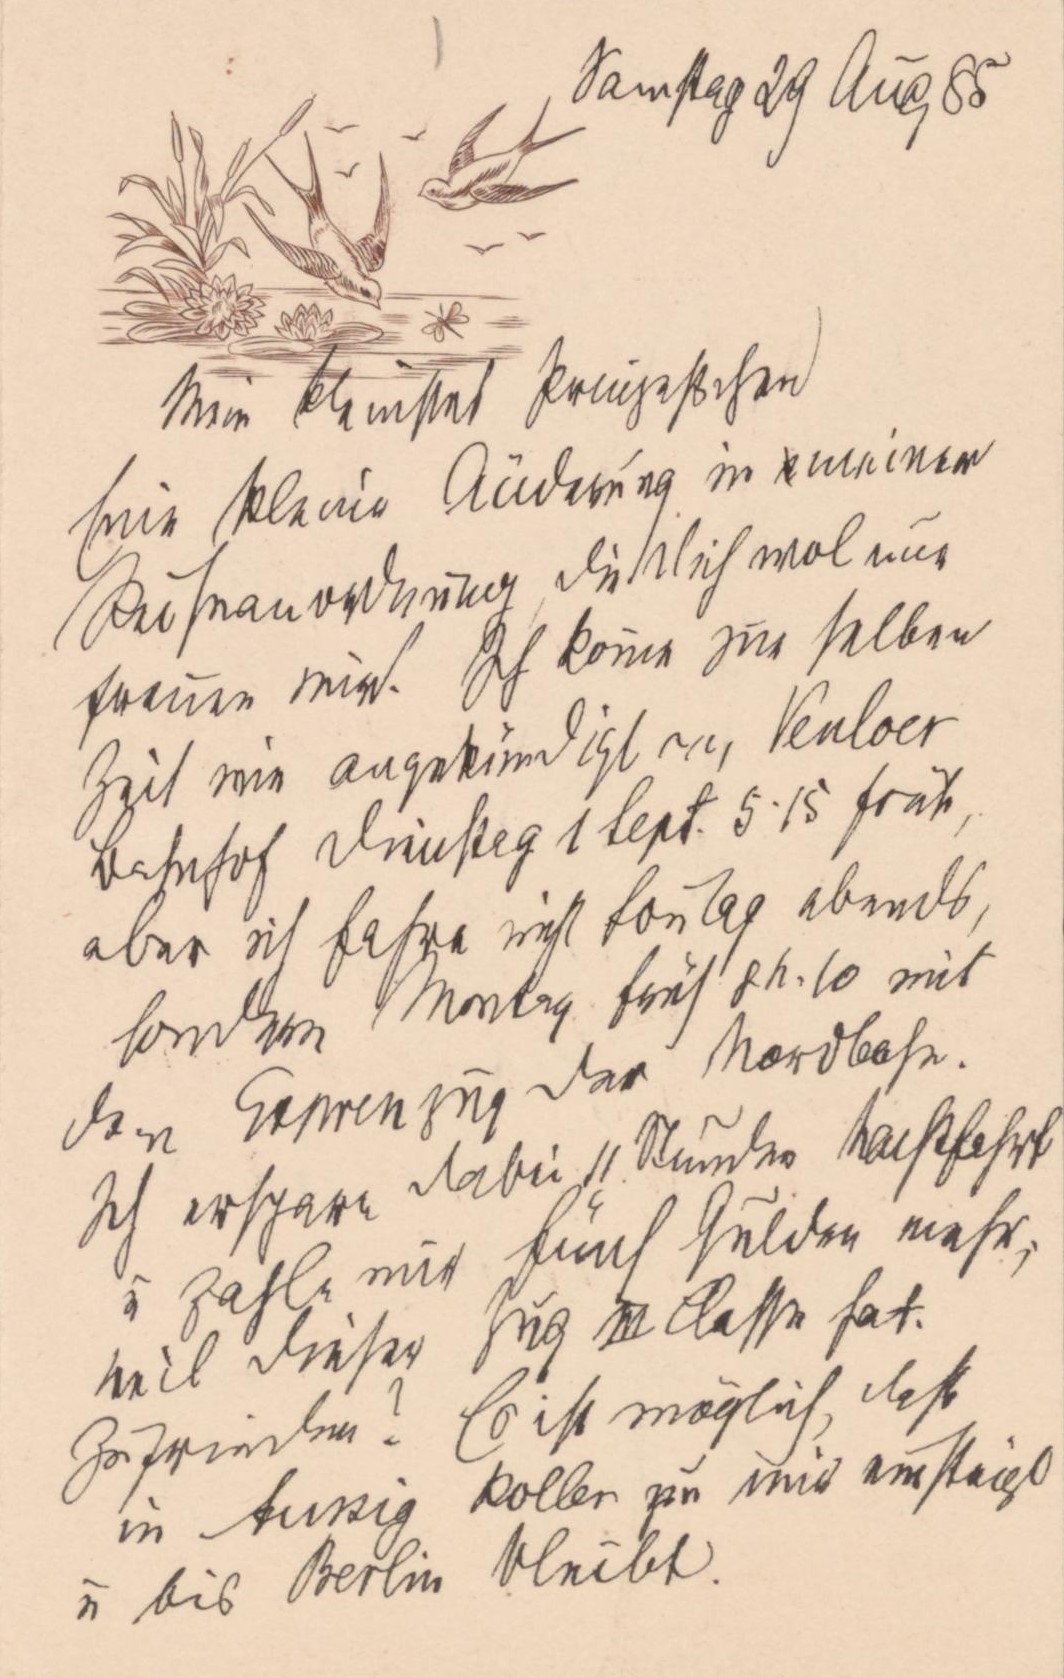 Samstag 29 Aug 85
Mein kleinstes Prinzeßchen
Eine kleine Änderung in meiner
Reiseanordnung, die Dich wol nur
freuen wird. Ich kome zur selben
Zeit wie angekündigt an, Venloer
Bahnhof Dienstag 1 Sept. 5·15 früh,
aber ich fahre nicht Sontag abends,
sondern Montag früh 8h·10 mit
dem Expresszug der Nordbahn.
Ich erspare dabei 11 Stunden Nachtfahrt
u zahle nur fünf Gulden mehr,
weil dieser Zug III Classe hat.
Zufrieden? Es ist möglich, daß
in Aussig Koller zu mir einsteigt
u bis Berlin bleibt.